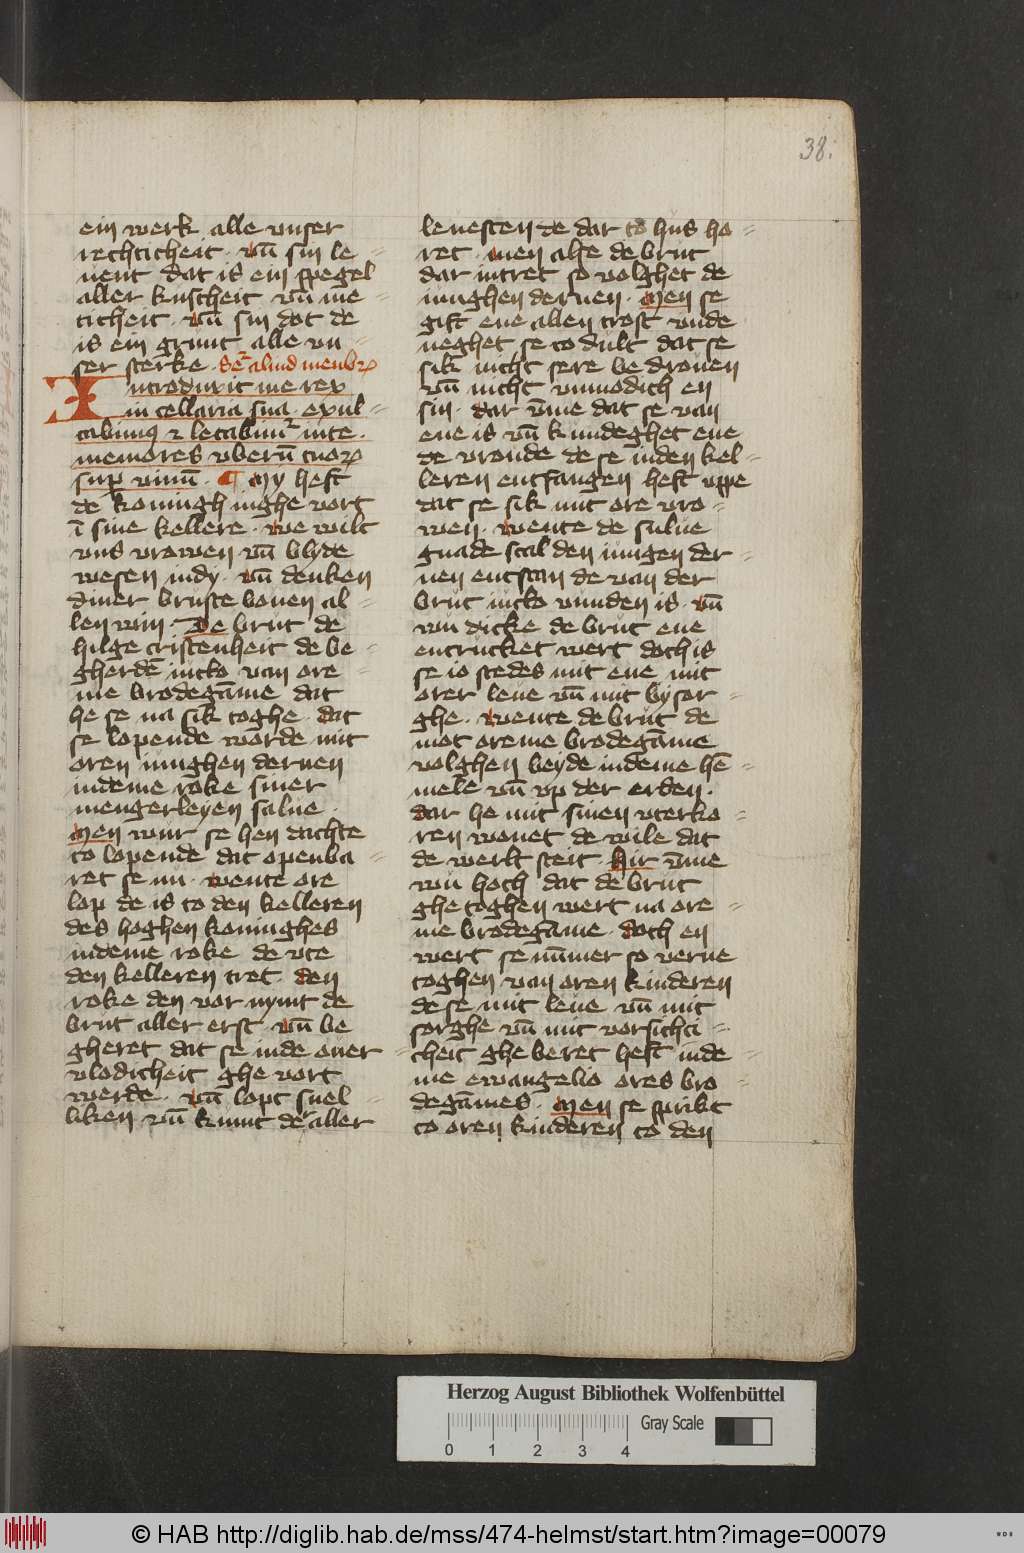 38.
ein werk alle vnser
rechticheit · vn̄ sin le
uent dat is ein speghel
aller kuscheit vn̄ me
ticheit · vn̄ sin dot de
is ein grunt alle vn
ser sterke · 
Introduxit me rex
in cellaria sua · exul
tabimꝰ ⁊ letabimur in te ·
memores vberū tuoꝝ
suꝑ vinū · ¶ My heft
de koningh inghe vort
ī sine kellere · we wilt
vns vrowen vn̄ blyde
wesen indy · vn̄ denken
diner bruste bouen al
len win · De brut de
hilge cristenheit de be
gherdē iucko van ore
me brodegāme dat
he se na sik toghe · dat
se lopende worde mit
oren iunghen dernen
indeme roke siner
mengerleyen salue ·
Men wur se hen dachte
to lopende dat openba
ret se nu · wente ore
lop de is to den kelleren
des hoghen koninghes
indeme roke de vte
den kelleren tret · den
roke den vor nymt de
brut aller erst · vn̄ be
gheret dat se inde ouer
vlodicheit ghe vort
werde · vn̄ lopt snel
liken vn̄ kumt der aller
leuesten de dar to hus ho
ret · men alse de brut
dar intret so volghet de
iunghen dernen · Men se
gift ene allen trost vnde
neghet se to dult dat se
sik nicht sere be drouen
vn̄ nicht vnmodich en
sin · dar v̄me dat se van
ene is vn̄ kundeghet ene
de vroude de se inden kel
leren entfangen heft vppe
dat se sik mit ore vro
wen · wente de sulue
gnade scal den iungen der
nen entstan de van der
brut iucko vunden is · vn̄
wu dicke de brut ene
entrucket wert doch is
se io stedes mit ene mit
orer leue vn̄ mit bysor
ghe · wente de brut de
mot oreme brodegāme
volghen beyde indeme hē
mele vn̄ vp der erden ·
dar he mit sinen vterko
ren wonet de wile dat
de werlt steit · Hir v̄me
wu hoch dat de brut
ghe toghen wert na ore
me brodegāme · doch en
wert se nūmer so verne
toghen van oren kinderen
de se mit leue vn̄ mit
sorghe vn̄ mit vorsichti
cheit ghe beret heft inde
me ewangelio ores bro
degāmes · Men se sprikt
to oren kinderen to den
Herzog August Bibliothek Wolfenbüttel
Gray Scale
0 1 2 3 4
© HAB http://diglib.hab.de/mss/474-helmst/start.htm?image=00079